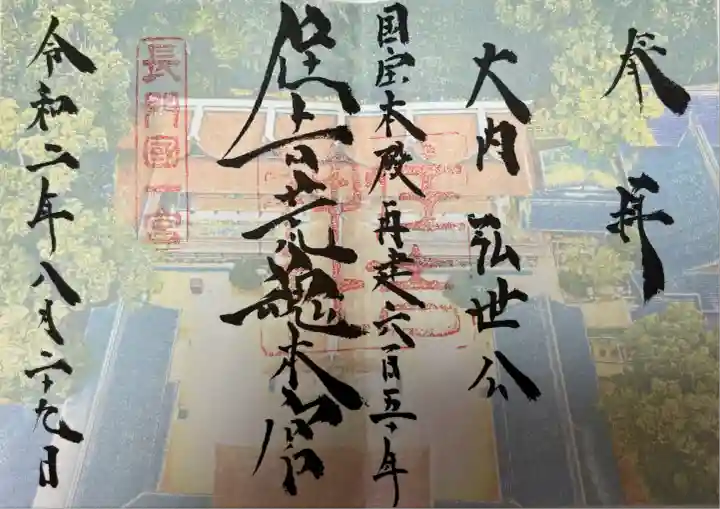 奉拝
大内弘世公
国宝本殿再建六百五十年
住吉荒魂本宮
長門國一宮
令和二年八月二十九日